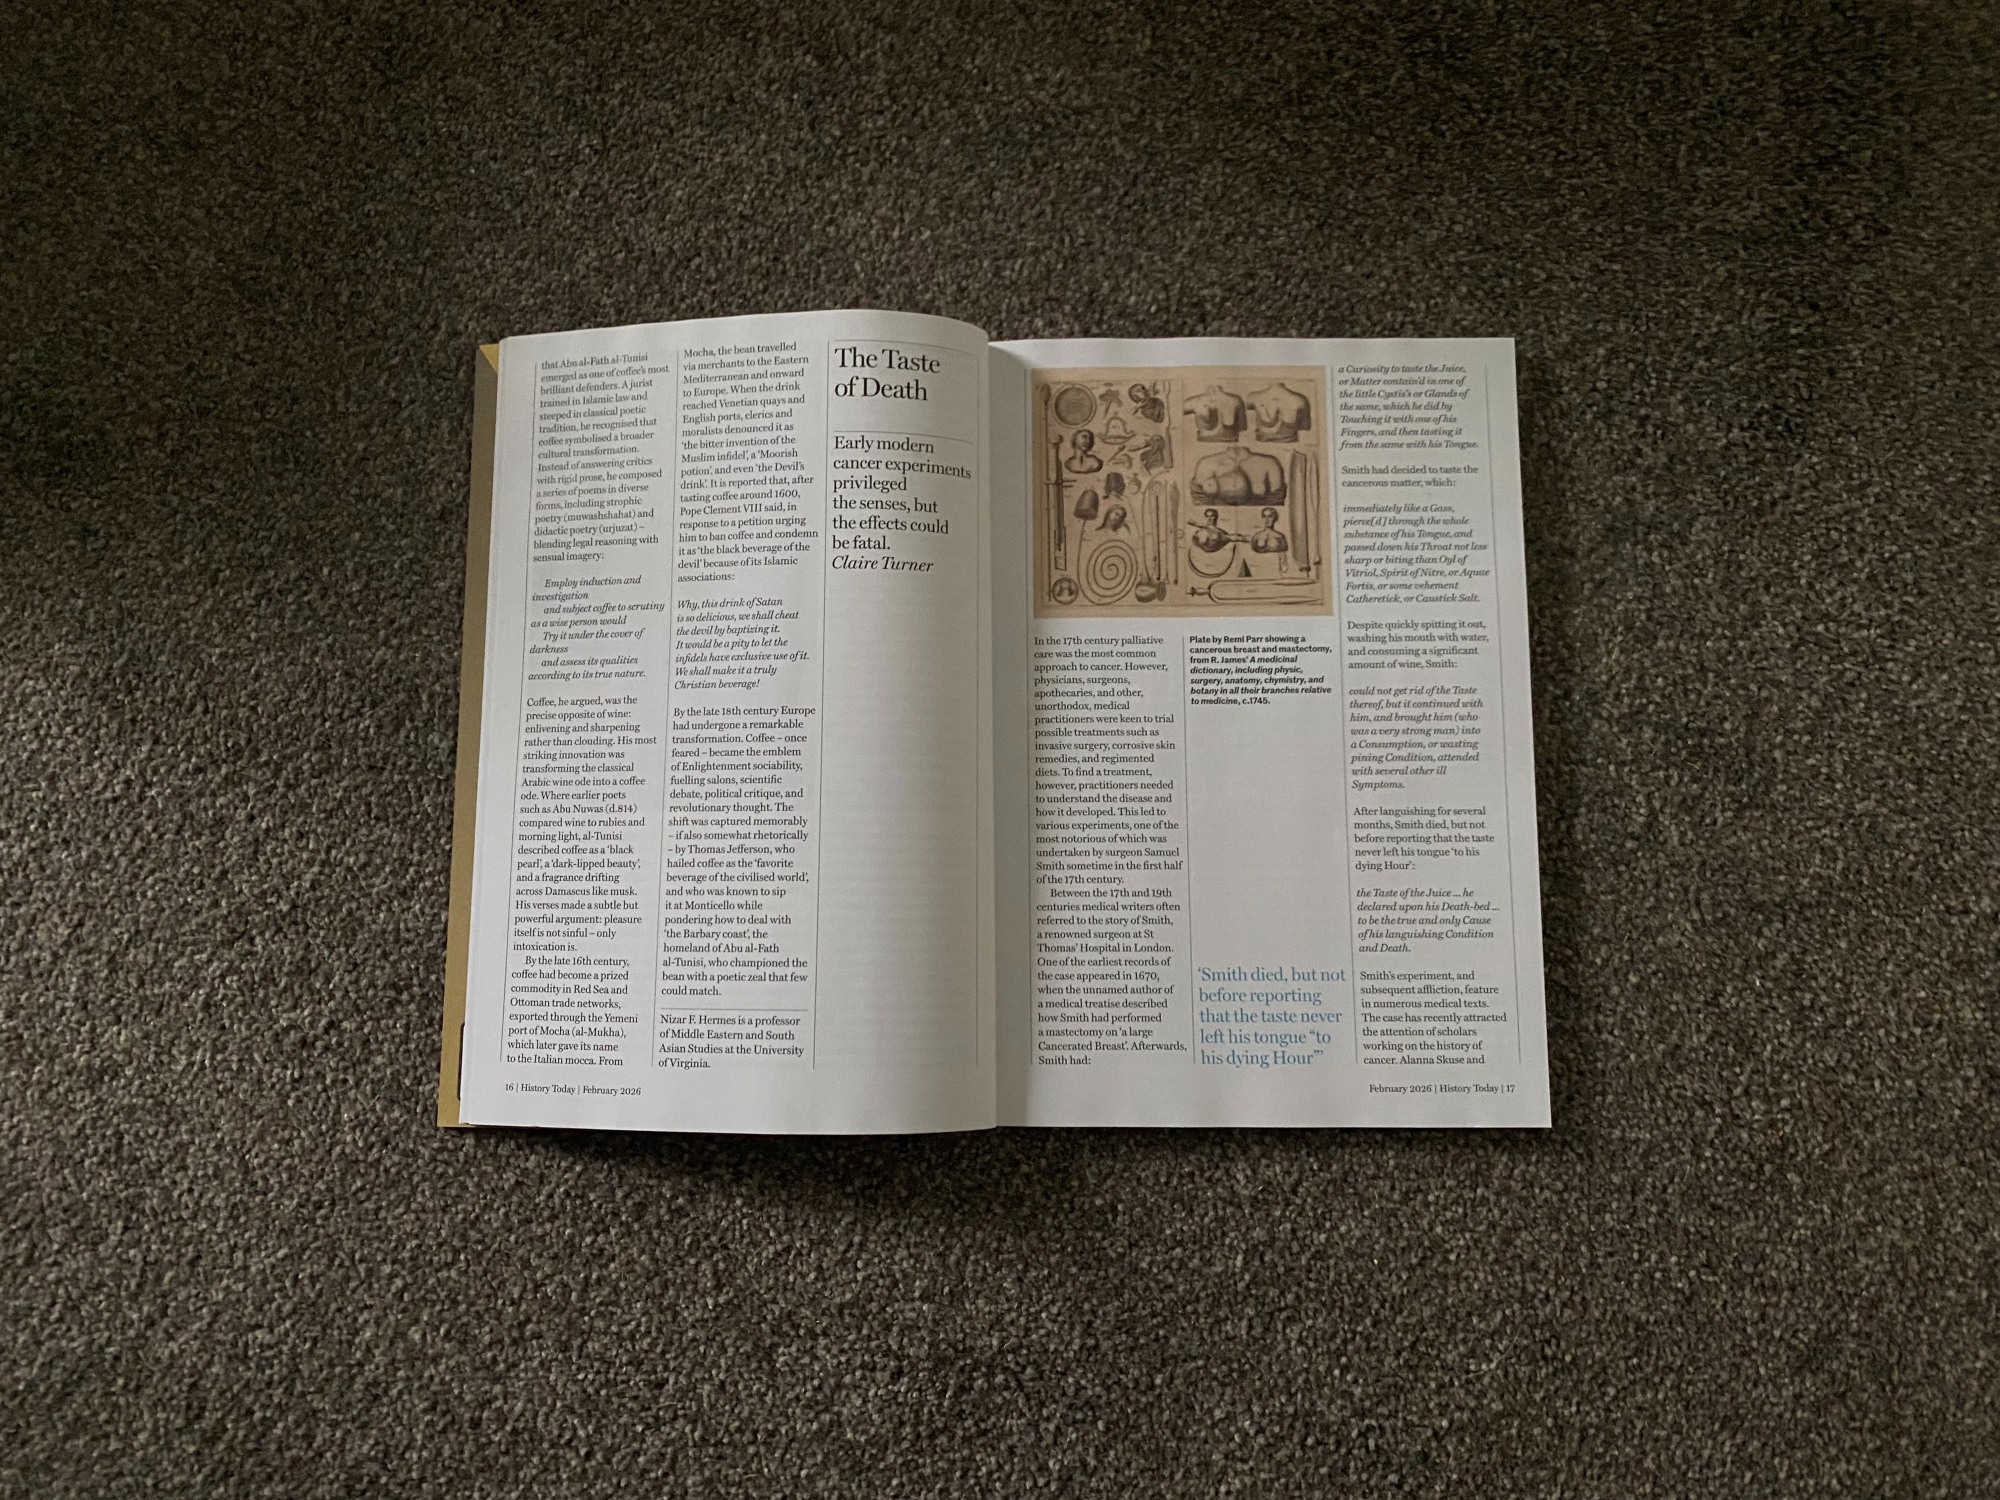 that Abu al-Fath al-Tunisi
emerged as one of coffee's most
brilliant defenders. A jurist
trained in Islamic law and
steeped in classical poetic
tradition, he recognised that
coffee symbolised a broader
cultural transformation.
Instead of answering critics
with rigid prose, he composed
a series of poems in diverse
forms, including strophic
poetry (muwashshahat) and
didactic poetry (urjuzat) –
blending legal reasoning with
sensual imagery:
Employ induction and
investigation
and subject coffee to scrutiny
as a wise person would
Try it under the cover of
darkness
and assess its qualities
according to its true nature.
Coffee, he argued, was the
precise opposite of wine:
enlivening and sharpening
rather than clouding. His most
striking innovation was
transforming the classical
Arabic wine ode into a coffee
ode. Where earlier poets
such as Abu Nuwas (d.814)
compared wine to rubies and
morning light, al-Tunisi
described coffee as a 'black
pearl', a 'dark-lipped beauty',
and a fragrance drifting
across Damascus like musk.
His verses made a subtle but
powerful argument: pleasure
itself is not sinful – only
intoxication is.
By the late 16th century,
coffee had become a prized
commodity in Red Sea and
Ottoman trade networks,
exported through the Yemeni
port of Mocha (al-Mukha),
which later gave its name
to the Italian mocca. From
Mocha, the bean travelled
via merchants to the Eastern
Mediterranean and onward
to Europe. When the drink
reached Venetian quays and
English ports, clerics and
moralists denounced it as
'the bitter invention of the
Muslim infidel', a 'Moorish
potion', and even 'the Devil's
drink'. It is reported that, after
tasting coffee around 1600,
Pope Clement VIII said, in
response to a petition urging
him to ban coffee and condemn
it as 'the black beverage of the
devil' because of its Islamic
associations:
Why, this drink of Satan
is so delicious, we shall cheat
the devil by baptizing it.
It would be a pity to let the
infidels have exclusive use of it.
We shall make it a truly
Christian beverage!
By the late 18th century Europe
had undergone a remarkable
transformation. Coffee – once
feared – became the emblem
of Enlightenment sociability,
fuelling salons, scientific
debate, political critique, and
revolutionary thought. The
shift was captured memorably
– if also somewhat rhetorically
– by Thomas Jefferson, who
hailed coffee as the 'favorite
beverage of the civilised world',
and who was known to sip
it at Monticello while
pondering how to deal with
'the Barbary coast', the
homeland of Abu al-Fath
al-Tunisi, who championed the
bean with a poetic zeal that few
could match.
Nizar F. Hermes is a professor
of Middle Eastern and South
Asian Studies at the University
of Virginia.
16 | History Today | February 2026
The Taste
of Death
Early modern
cancer experiments
privileged
the senses, but
the effects could
be fatal.
Claire Turner
In the 17th century palliative
care was the most common
approach to cancer. However,
physicians, surgeons,
apothecaries, and other,
unorthodox, medical
practitioners were keen to trial
possible treatments such as
invasive surgery, corrosive skin
remedies, and regimented
diets. To find a treatment,
however, practitioners needed
to understand the disease and
how it developed. This led to
various experiments, one of the
most notorious of which was
undertaken by surgeon Samuel
Smith sometime in the first half
of the 17th century.
Between the 17th and 19th
centuries medical writers often
referred to the story of Smith,
a renowned surgeon at St
Thomas' Hospital in London.
One of the earliest records of
the case appeared in 1670,
when the unnamed author of
a medical treatise described
how Smith had performed
a mastectomy on 'a large
Cancerated Breast'. Afterwards,
Smith had:
Plate by Remi Parr showing a
cancerous breast and mastectomy,
from R. James' A medicinal
dictionary, including physic,
surgery, anatomy, chymistry, and
botany in all their branches relative
to medicine, c.1745.
'Smith died, but not
before reporting
that the taste never
left his tongue "to
his dying Hour"'
a Curiosity to taste the Juice,
or Matter contain'd in one of
the little Cystis's or Glands of
the same, which he did by
Touching it with one of his
Fingers, and then tasting it
from the same with his Tongue.
Smith had decided to taste the
cancerous matter, which:
immediately like a Gass,
pierce[d] through the whole
substance of his Tongue, and
passed down his Throat not less
sharp or biting than Oyl of
Vitriol, Spirit of Nitre, or Aquae
Fortis, or some vehement
Catheretick, or Caustick Salt.
Despite quickly spitting it out,
washing his mouth with water,
and consuming a significant
amount of wine, Smith:
could not get rid of the Taste
thereof, but it continued with
him, and brought him (who
was a very strong man) into
a Consumption, or wasting
pining Condition, attended
with several other ill
Symptoms.
After languishing for several
months, Smith died, but not
before reporting that the taste
never left his tongue 'to his
dying Hour':
the Taste of the Juice ... he
declared upon his Death-bed ...
to be the true and only Cause
of his languishing Condition
and Death.
Smith's experiment, and
subsequent affliction, feature
in numerous medical texts.
The case has recently attracted
the attention of scholars
working on the history of
cancer. Alanna Skuse and
February 2026 | History Today | 17